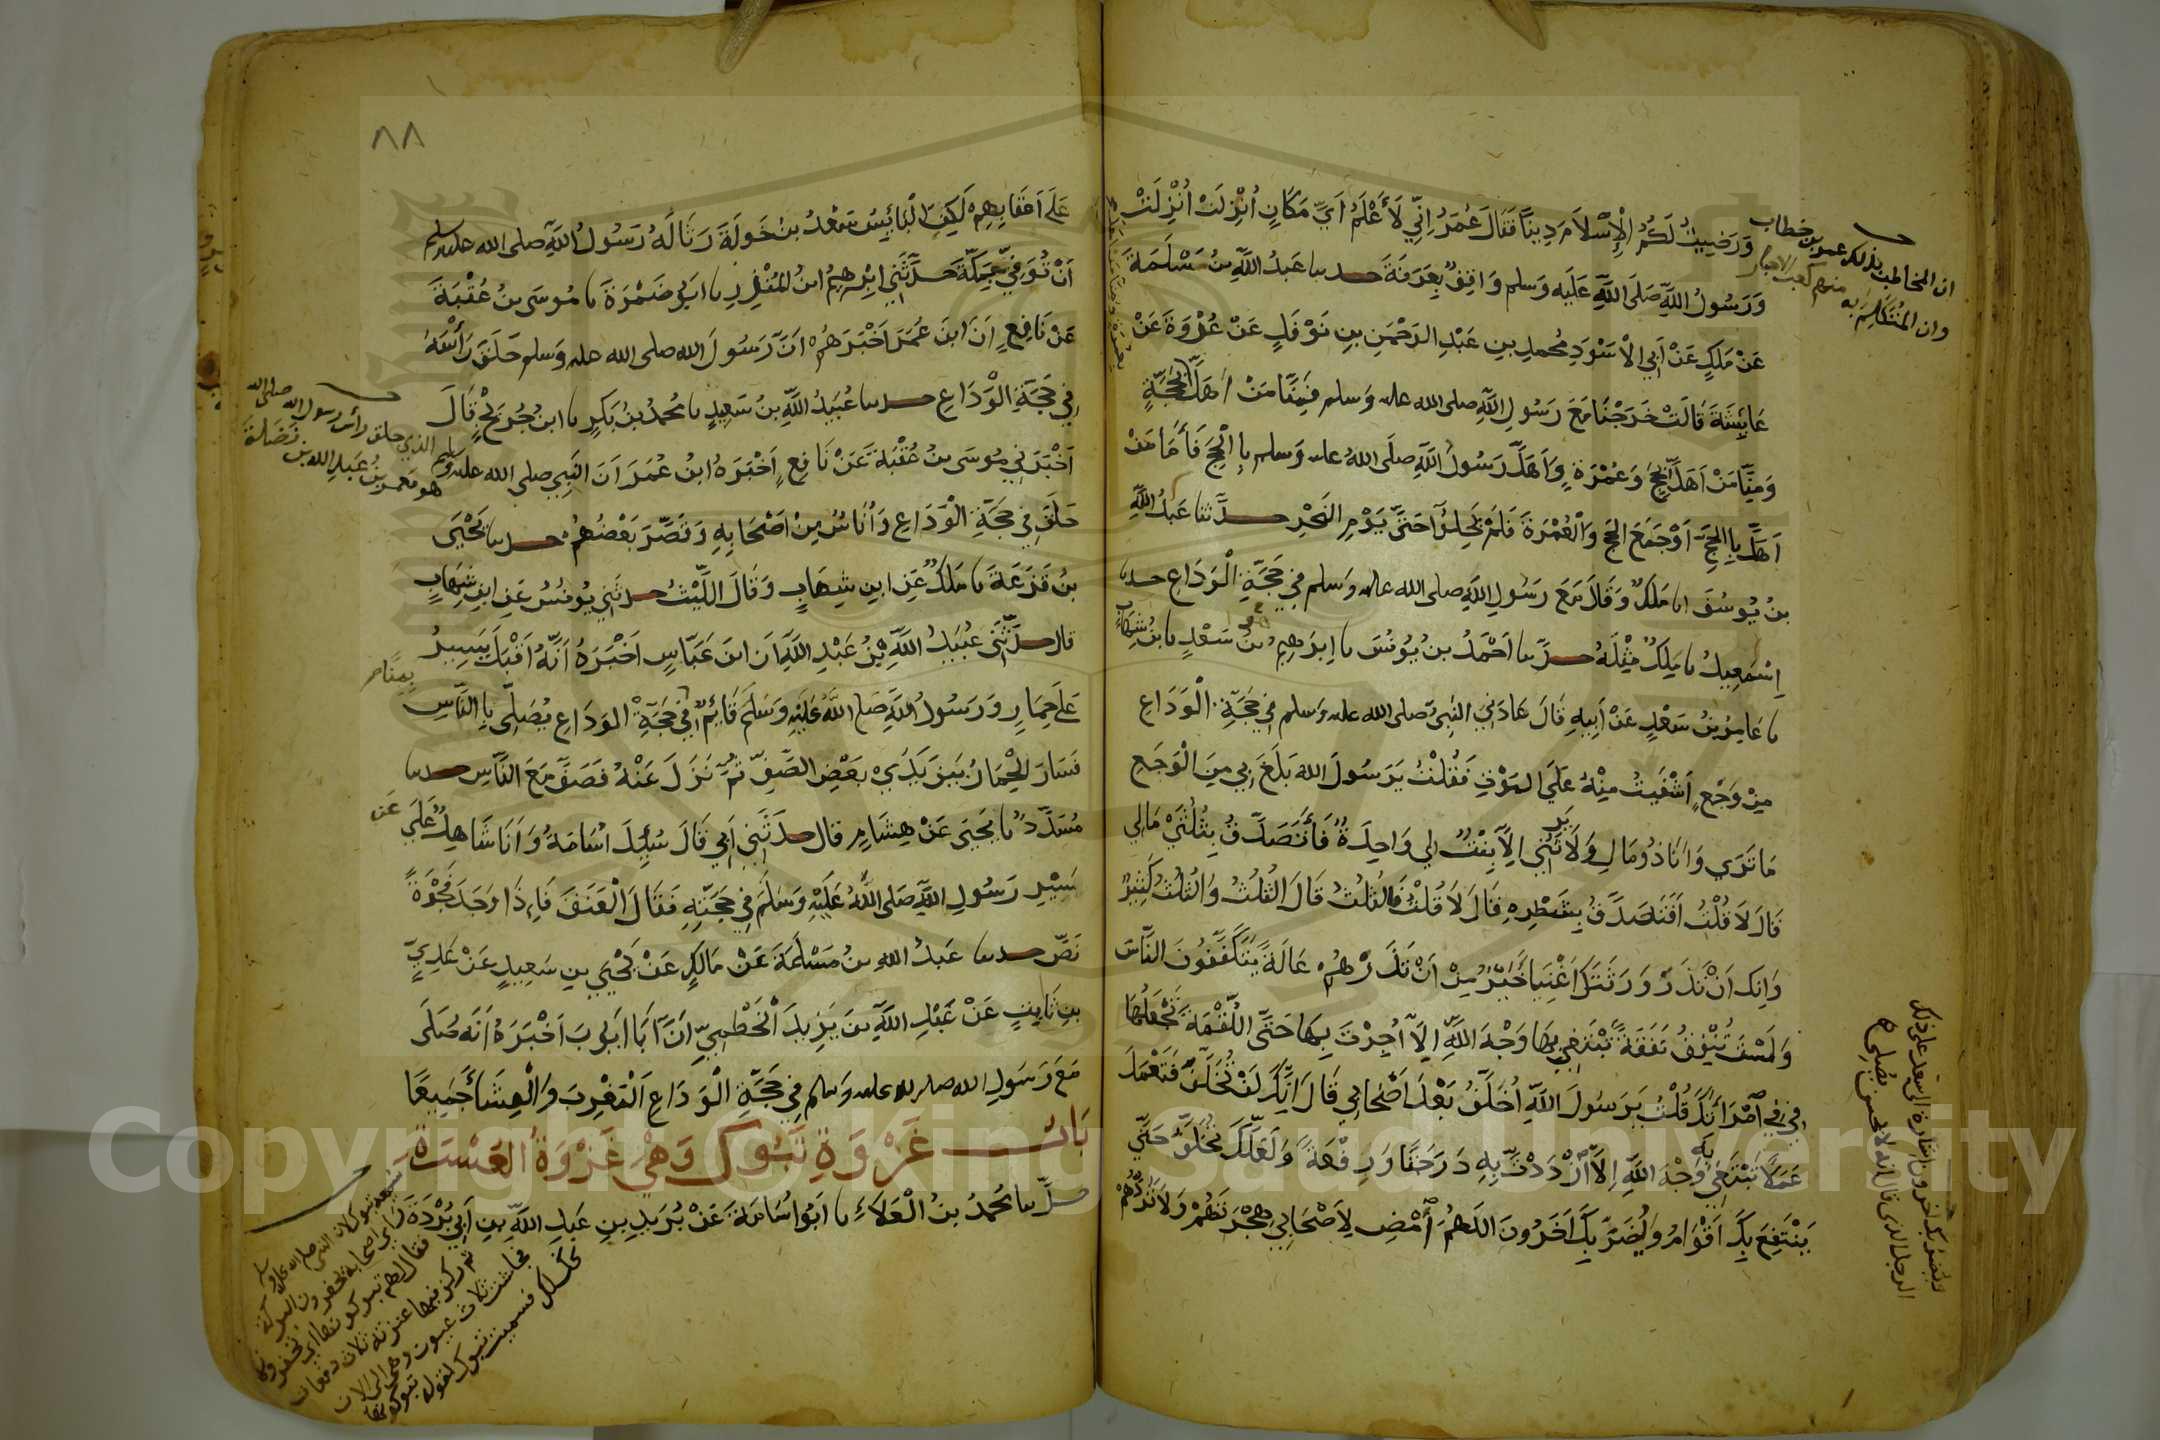 وَرَضِيتُ لَكُمُ الْإِسْلَامَ دِينًا فَقَالَ عُمَرُ اِنِّي لَأَعْلَمُ اَيَّ مَكَانٍ اُنْزِلَتْ اُنْزِلَتْ
وَرَسُولُ اللَّهِ صَلَى اللَّهُ عَلَيه وَسلم وَاقِفٌ بِعَرَفَةَ حدىا عَبدُ اللَّهِ بنُ مَسْلَمَةَ
عَنْ مَلِكٍ عَنْ اَبِي الاسْوَدِ مُحمدِ بنِ عَبْدِ الرَحْمَنِ بنِ نَوْفَلٍ عَنْ عُرْوَةَ عَنْ
عَائِشَةَ قَالَتْ خَرَجْنَا مَعَ رَسُولِ اللَّهِ صلى الله عليه وَسلم فَمِنَّا مَنْ اَهَلَّ بِحَجَّةٍ
وَمِنَّا مَنْ اَهَلَّ بِحَجٍّ وَعُمْرَةٍ وَاَهَلَّ رَسُولُ اللَّهِ صلَى اللهُ عليه وسلم بِالْحَجِّ فَأَمَّا مَنْ
اَهَلَّ بِالحَجِّ اَوْ جَمَعَ الحَجَّ وَالْعُمْرَةَ فَلَمْ يَحِلُّوا حَتَّى يَوْمِ النَحْرِ حدَّثنا عَبدُ اللَّهِ
بنُ يُوسُفَ انا مَلِكٌ وَقَالَ مَعَ رَسُولِ اللَّهِ صلى الله عليه وسلم فِي حَجَّةِ الْوَدَاعِ حدىا
اِسْمَعِيلُ ىا مَلِكٌ مِثْلَهُ حدَّىىا اَحْمَدُ بنُ يُونُسَ ىا اِبرَهِيمُ بنُ سَعْدٍ ىا ابنُ شِهَابٍ
ىا عَامِرُ بنُ سَعْدٍ عَنْ اَبِيهِ قَالَ عَادَنِي النَبِيُّ صلى الله عليه وسلم فِي حَجَّةِ الْوَدَاعِ
مِنْ وَجَعٍ اَشْفَيتُ مِنْهُ عَلَى المَوْتِ فَقُلْتُ يَرَسُولَ الله بَلَغَ بِي مِنَ الْوَجَعِ
مَا تَرَي وَاَنَا ذُو مَالٍ وَلَا يَرِثُنِي الَّا بِنْتٌ لِي وَاحِدَةٌ فَأَتَصَدَّقُ بِثُلُثَيْ مَالِي
قَالَ لَا قُلْتُ اَفَتَصَدَّقُ بِشَطْرِهِ قَالَ لَا قُلْتُ فَالثُلُثُ قَالَ الثُلُثُ وَالثُلُثُ كَثِيرٌ
وَاِنك اَنْ تَذَرَ وَرَثَتَكَ اَغْنِيَا خَيرٌ مِنْ اَنْ تَذَرَهُمْ عَالَةً يَتَكَفَّفُونَ النَّاسَ
وَلَسْتَ تُنْفِقُ نَفَقَةً تَبْتَغِي بِهَا وَجْهَ اللَّهِ اِلَّا اُجِرْتَ بِهَا حَتَّى اللُّقْمَةَ تَجْعَلُهَا
فِي فِي امْرَاَتِكَ قُلْتُ يَرَسُولَ اللَّهِ اُخَلَّفُ بَعْدَ اَصْحَابِي قَالَ اِنَّكَ لَنْ تُخَلَّفَ فَتَعْمَلَ
عَمَلًا تَبْتَغِي بِهِ وَجْهَ اللَّهِ اِلَّا ازْدَدْتَّ بِهِ دَرَجَةً وَرِفْعَةً وَلَعَلَّكَ تُخَلَّفُ حَتَّي
يَنْتَفِعَ بِكَ اَقْوَامٌ وَيُضَرَّ بِكَ اَخَرُونَ اللَهُمَّ اَمْضِ لِاَصْحَابِي هِجْرَتَهُمْ وَلَا تَرُدَّهُمْ
ان المخاطب بذلك عمر بن خطاب
وان المُتَكَلِمَ به منهم كعب الاحبار
ويضر بك اخرون اشارة الى سعد على ذلك
الرجل الذى قال انه لا يحسن يصلي
٨٨
عَلَى اَعْقَابِهِمْ لَكِنِ الْبَائِسُ سَعْدُ بنُ خَولَةَ رَثَا لَهُ رَسُولُ اللَّهِ صلى الله عليه وسلم
اَنْ تُوُفِّيَ بِمَكَّةَ حدَّثَنِي ابْرهِيمُ ابنُ المُنْذِرِ ىا ابُو ضَمْرَةَ ىا مُوسَى بنُ عُقْبَةَ
عَنْ نَافِعٍ اَنَ ابنَ عُمَرَ اَخْبَرَهُمْ اَنَّ رَسُولَ الله صلى الله عليه وَسلم حَلَقَ رَأْسَهُ
فِي حَجَّةِ الْوَدَاعِ حدىا عُبَيدُ اللَّهِ بنُ سَعِيدٍ ىا مُحمدُ بنُ بَكْرٍ ىا ابنُ جُرَيجٍ قَالَ
اَخْبَرَنِي مُوسَى بنُ عُقْبَةَ عَنْ نَافِعٍ اَخْبَرَهُ ابنُ عُمَرَ اَنَ النَبِي صلى الله عليه وسلم
حَلَقَ فِي حَجَّةِ الْوَدَاعِ وَاُنَاسٌ مِنْ اَصْحَابِهِ وَقَصَّرَ بَعْضُهُمْ حدىا يَحْيَى
بنُ قَزَعَةَ ىا مَلِكٌ عَنِ ابنِ شِهَابٍ وَقَالَ اللَّيْثُ حدثَنِي يُونُسُ عَنِ ابنِ شِهَابٍ
قال حدَّثَنِي عُبَيدُ اللَّهِ بْنُ عَبْدِ اللَّهِ اَنَ ابنَ عَبَّاسٍ اَخْبَرَهُ اَنَّهُ اَقْبَلَ يَسِيرُ
عَلَى حِمَارٍ وَرَسُولُ اللَّهِ صَلى اللَّهُ عَلَيْهِ وَسَلَّمَ قَائِمٌ فِي حَجَّةِ الوَدَاعِ يُصَلِّي بِالنَّاسِ
فَسَارَ الْحِمَارُ بَينَ يَدَيْ بَعْضِ الصَّفِّ ثُمَّ نَزَلَ عَنْهُ فَصَفَّ مَعَ النَّاسِ حدىا
مُسَدَّدٌ ىا يَحْيَى عَنْ هِشَامٍ قال حدَثَنِي اَبِي قَالَ سُئِلَ اُسَامَةُ وَاَنَا شَاهِدٌ عَلَى عَن
سَيْرِ رَسُولِ اللَّهِ صَلى اللَّهُ عَلَيْهِ وَسَلَّمَ فِي حَجَّتِهِ فَقَالَ الْعَنَقَ فَإِذَا وَجَدَ فَجْوَةً
نَصَّ حدىا عَبدُ اللهِ بنُ مَسْلَمَةَ عَنْ مَالِكٍ عَنْ يَحْيَي بنِ سَعِيدٍ عَنْ عَدِيِّ
بنِ ثَابِتٍ عَنْ عَبْدِ اللَّهِ بنِ يَزِيدَ الْخَطْمِيِّ اَنَّ اَبَا ايُوبَ اَخْبَرَهُ اَنَه صَلَى
مَعَ رَسُولِ الله صلى الله عليه وَسلم فِي حَجَّةِ الْوَدَاعِ الْمَغْرِبَ وَالْعِشَا جَمِيعًا
بَابُ غَزْوَةِ تَبُوكَ وَهِيَ غَزْوَةُ العُسْرَةِ
حدَّىىا مُحمدُ بنُ الْعَلَاءِ ىا اَبُو اُسَامَةَ عَنْ بُرَيدِ بنِ عَبدِ اللَّهِ بنِ اَبِي بُرْدَةَ
رأس رسول الله صلى الله
عليه وسلم الذي حلق
هو معمر بن عبد الله بن نضلة
بِمِنًا صح
Copyright © King Saud University